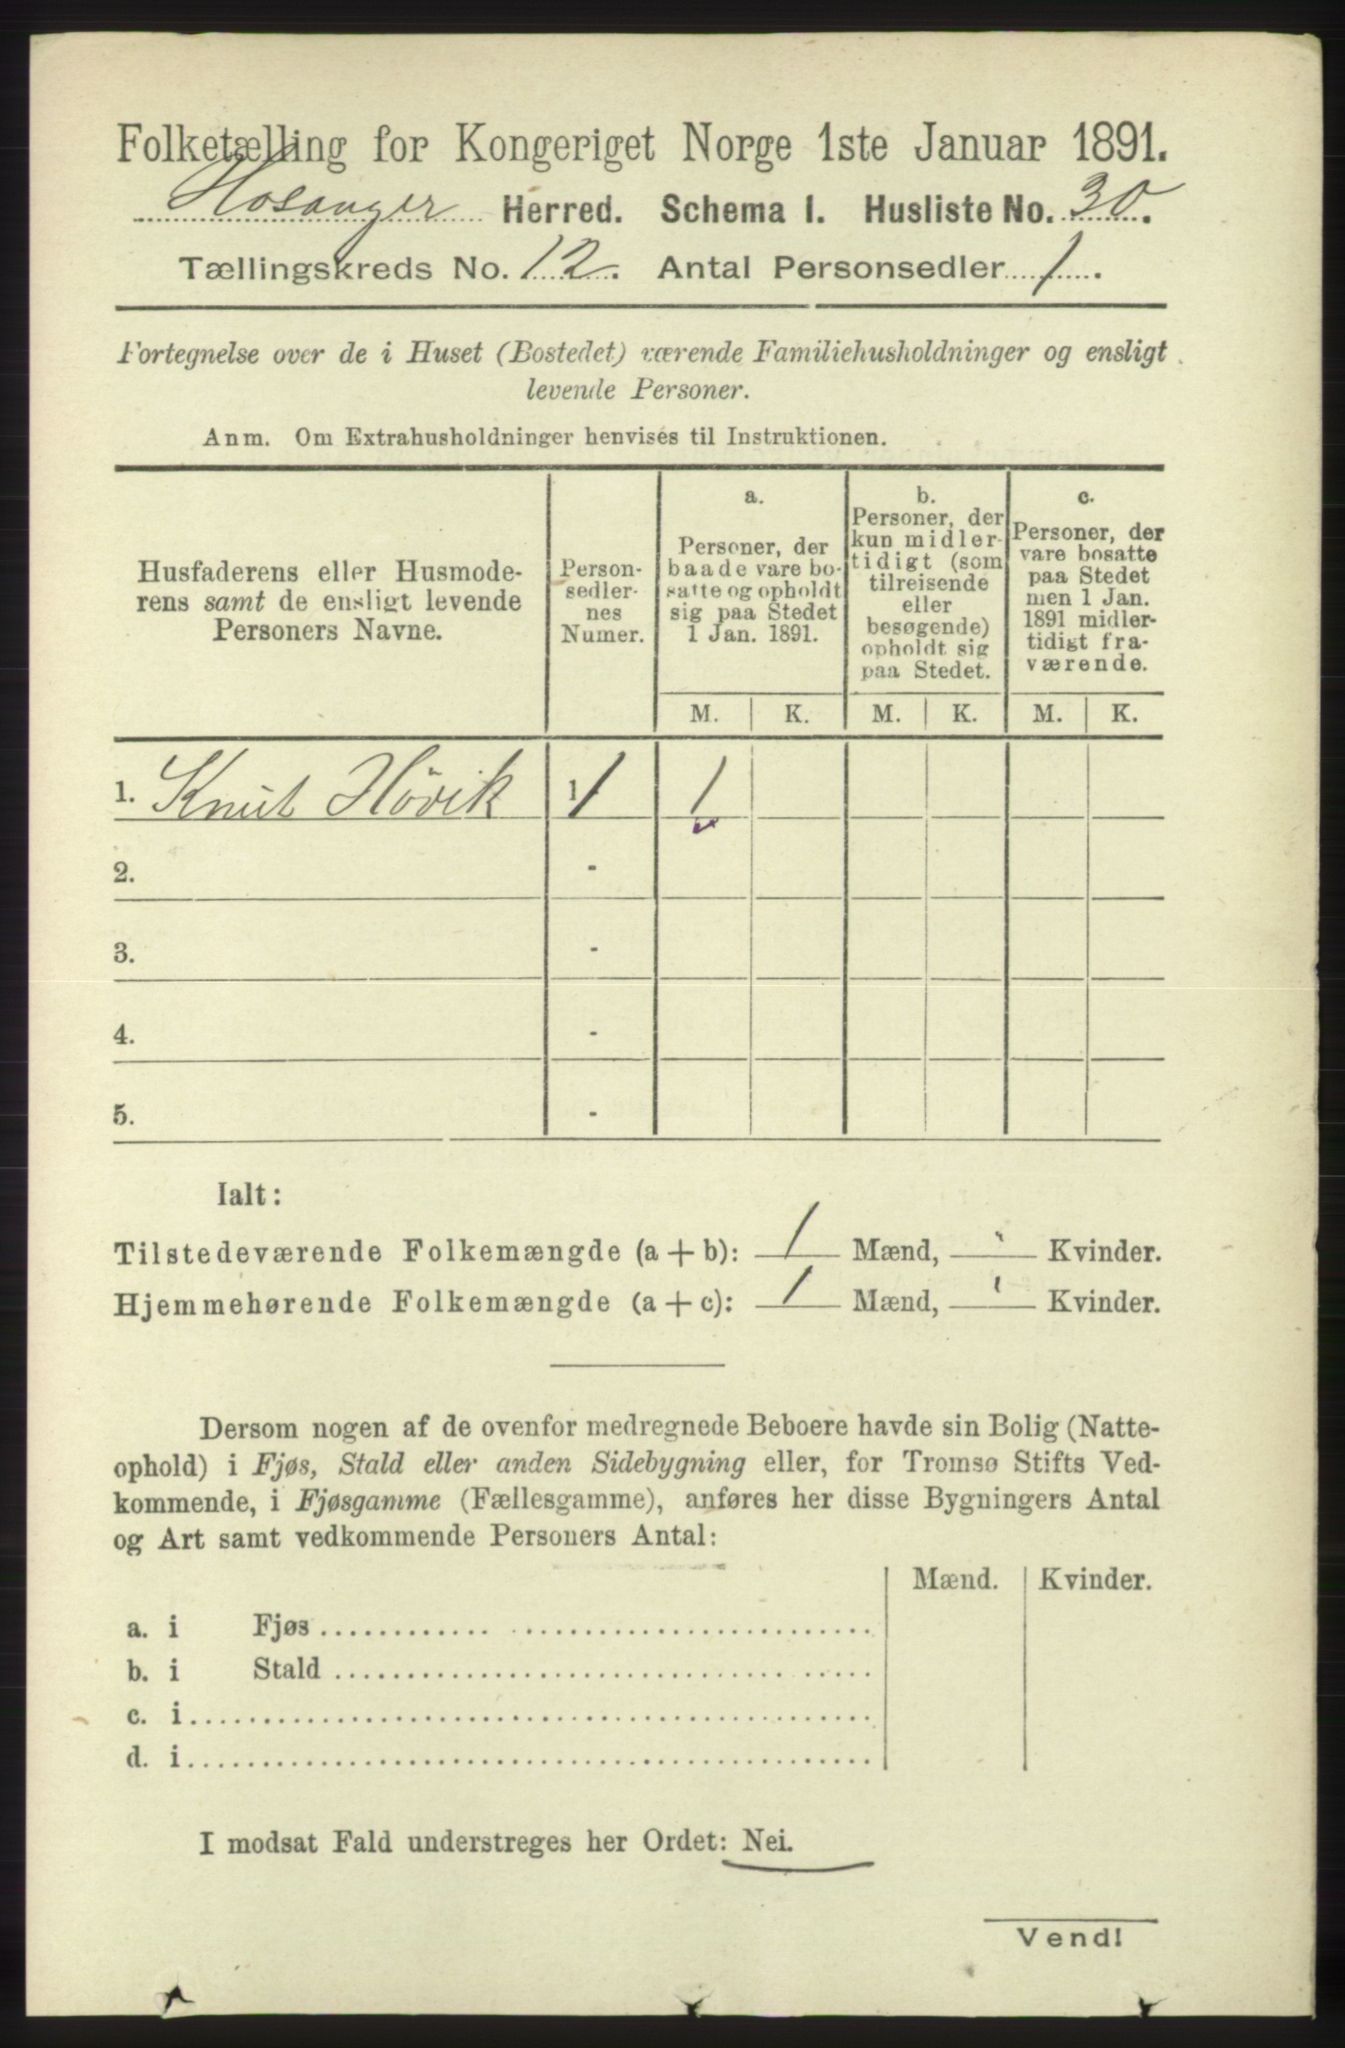 Folketælling for Kongeriget Norge 1ste Januar 1891.
Hosanger Herred. Schema I. Husliste No. 30.
Tællingskreds No. 12. Antal Personsedler 1.
Fortegnelse over de i Huset (Bostedet) værende Familiehusholdninger og ensligt
levende Personer.
Anm. Om Extrahusholdninger henvises til Instruktionen.
Husfaderens eller Husmode-
rens samt de ensligt levende
Personers Navne.
Person-
sedler-
nes
Numer.
a.
Personer, der
baade vare bo-
satte og opholdt
sig paa Stedet
1 Jan. 1891.
b.
Personer, der
kun midler-
tidigt (som
tilreisende
eller
besøgende)
opholdt sig
paa Stedet.
c.
Personer, der
vare bosatte
paa Stedet
men 1 Jan.
1891 midler-
tidigt fra-
værende.
M. K. M. K. M. K.
1. Knut Hövik 1 1 1
2. -
3. -
4. -
5. -
Ialt:
Tilstedeværende Folkemængde (a + b): 1 Mænd, Kvinder.
Hjemmehørende Folkemængde (a + c): 1 Mænd, Kvinder.
Dersom nogen af de ovenfor medregnede Beboere havde sin Bolig (Natte-
ophold) i Fjøs, Stald eller anden Sidebygning eller, for Tromsø Stifts Ved-
kommende, i Fjøsgamme (Fællesgamme), anføres her disse Bygningers Antal
og Art samt vedkommende Personers Antal:
Mænd. Kvinder.
a. i Fjøs
b. i Stald
c. i
d. i
I modsat Fald understreges her Ordet: Nei.
Vend!